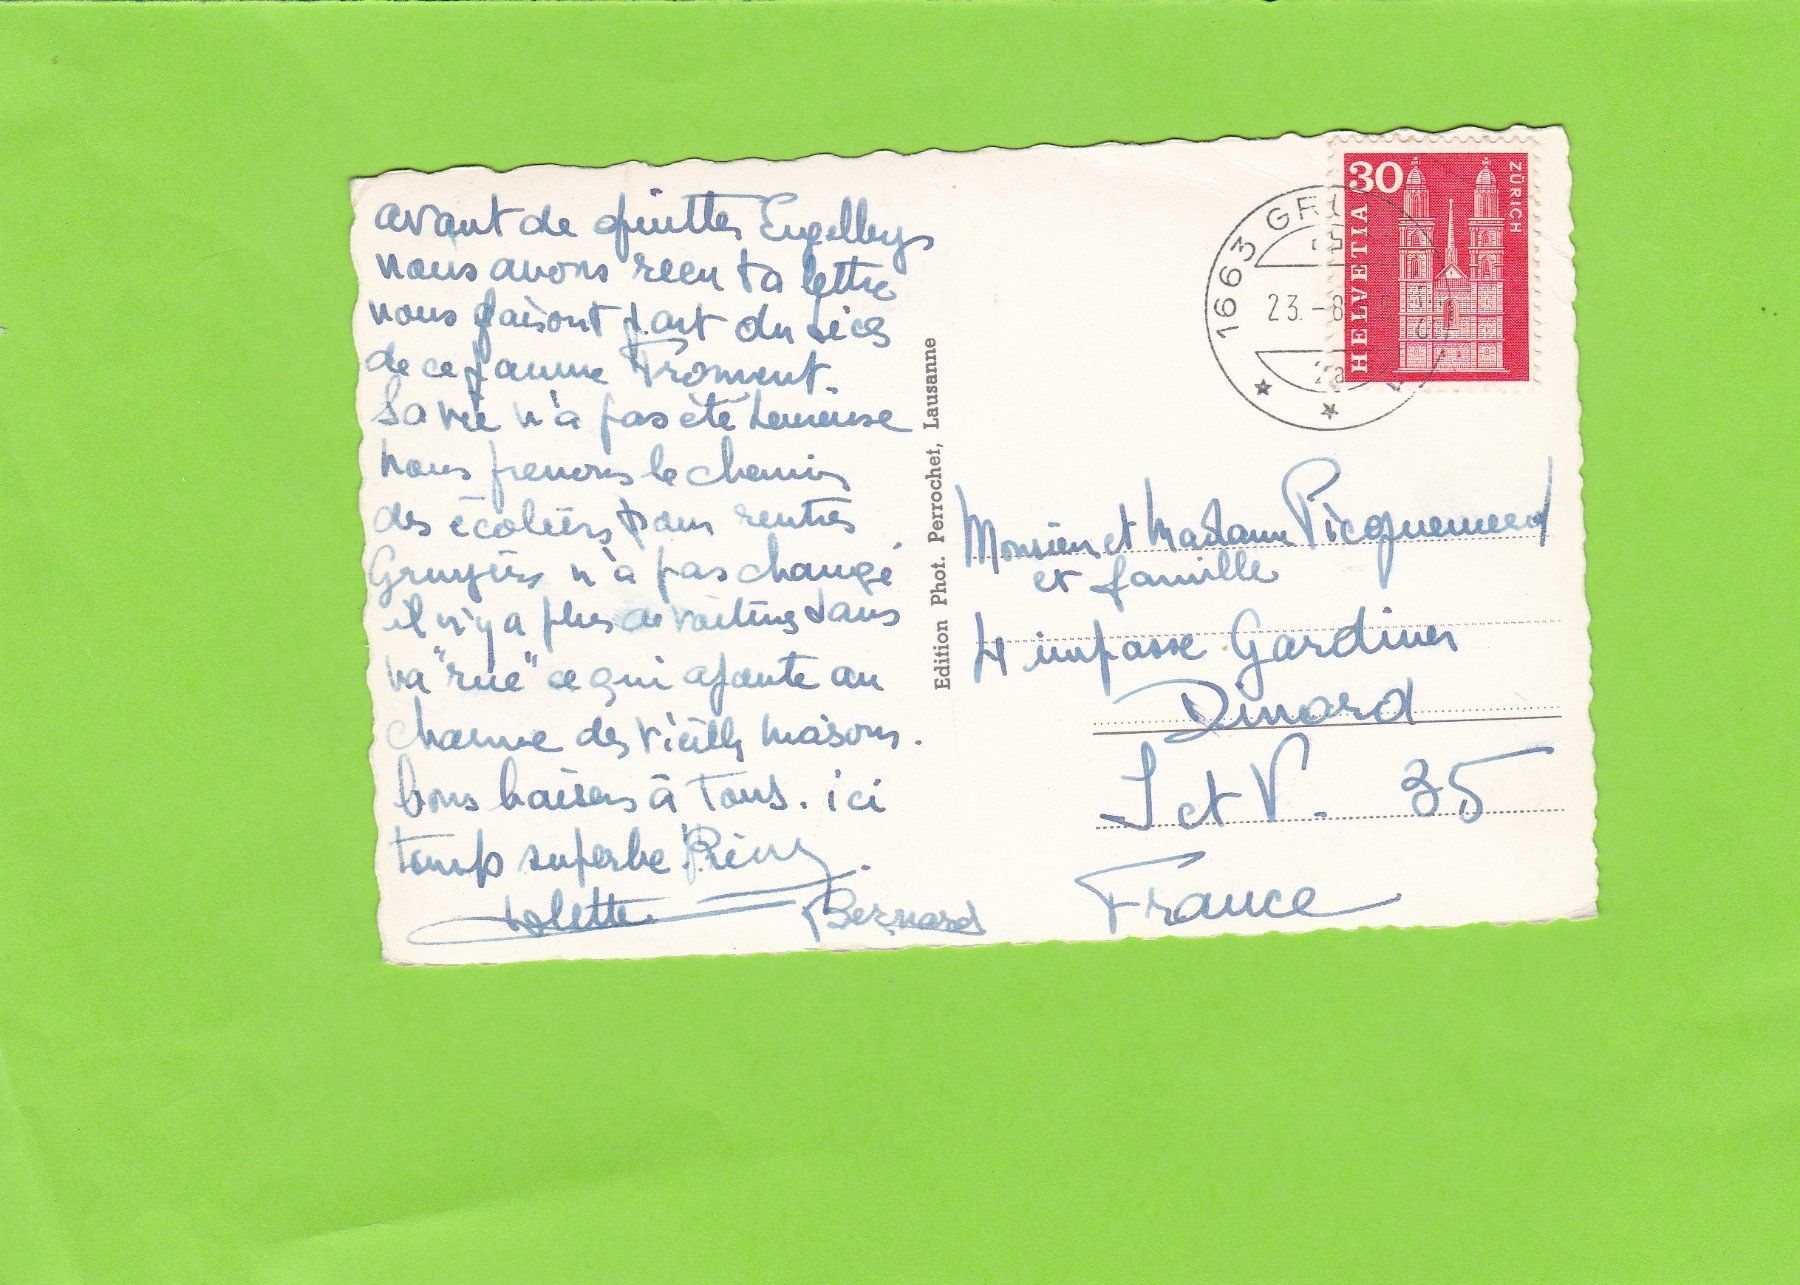 avant de quitter Engelberg
nous avons reçu ta lettre
nous faisant part du décès
de ce jeune Froment.
Sa vie n'a pas été heureuse
nous prenons le chemin
des écoliers pour rentrer
Gruyères n'a pas changé
il n'y a plus de voitures dans
"rue" ce qui ajoute au
charme des vieilles maisons.
bons baisers à tous. ici
temps superbe
Bernard
Edition Phot. Perrochet, Lausanne
30
ZÜRICH
HELVETIA
1663
23.-8
Monsieur et Madame
et famille
4 impasse Gardiner
Dinard
I et V. 35
France